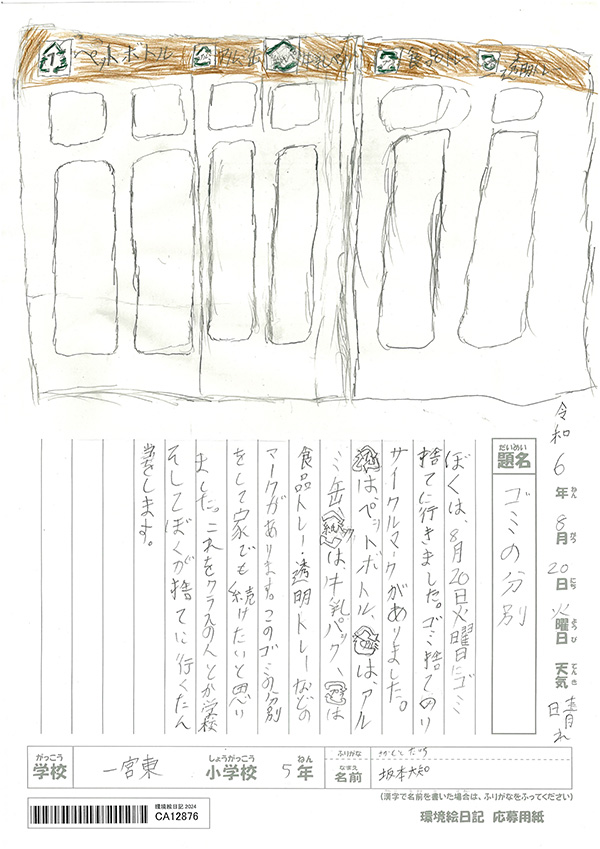 1 ペットボトル
アルミ缶
牛乳パック
食品トレー
透明トレー
令和6年ねん8月がつ20日にち火曜日ようび 天気てんき晴れ
だいめい
題名
ゴミの分別
ぼくは、8月20日火曜日にゴミ
捨てに行きました。ゴミ捨てのリ
サイクルマークがありました。
は、ペットボトル、は、アル
ミ缶、紙パックは、牛乳パック、は
食品トレー・透明トレーなどの
マークがあります。このゴミの分別
をして家でも続けたいと思い
ました。これをクラスの人とか学校
そしてぼくが捨てに行くたん
当をします。
がっこう しょうがっこう ねん ふりがな さかもとだいち
学校 一宮東 小学校 5年
なまえ
名前 坂本大知
(漢字で名前を書いた場合は、ふりがなをふってください)
環境絵日記 2024
CA12876
環境絵日記 応募用紙